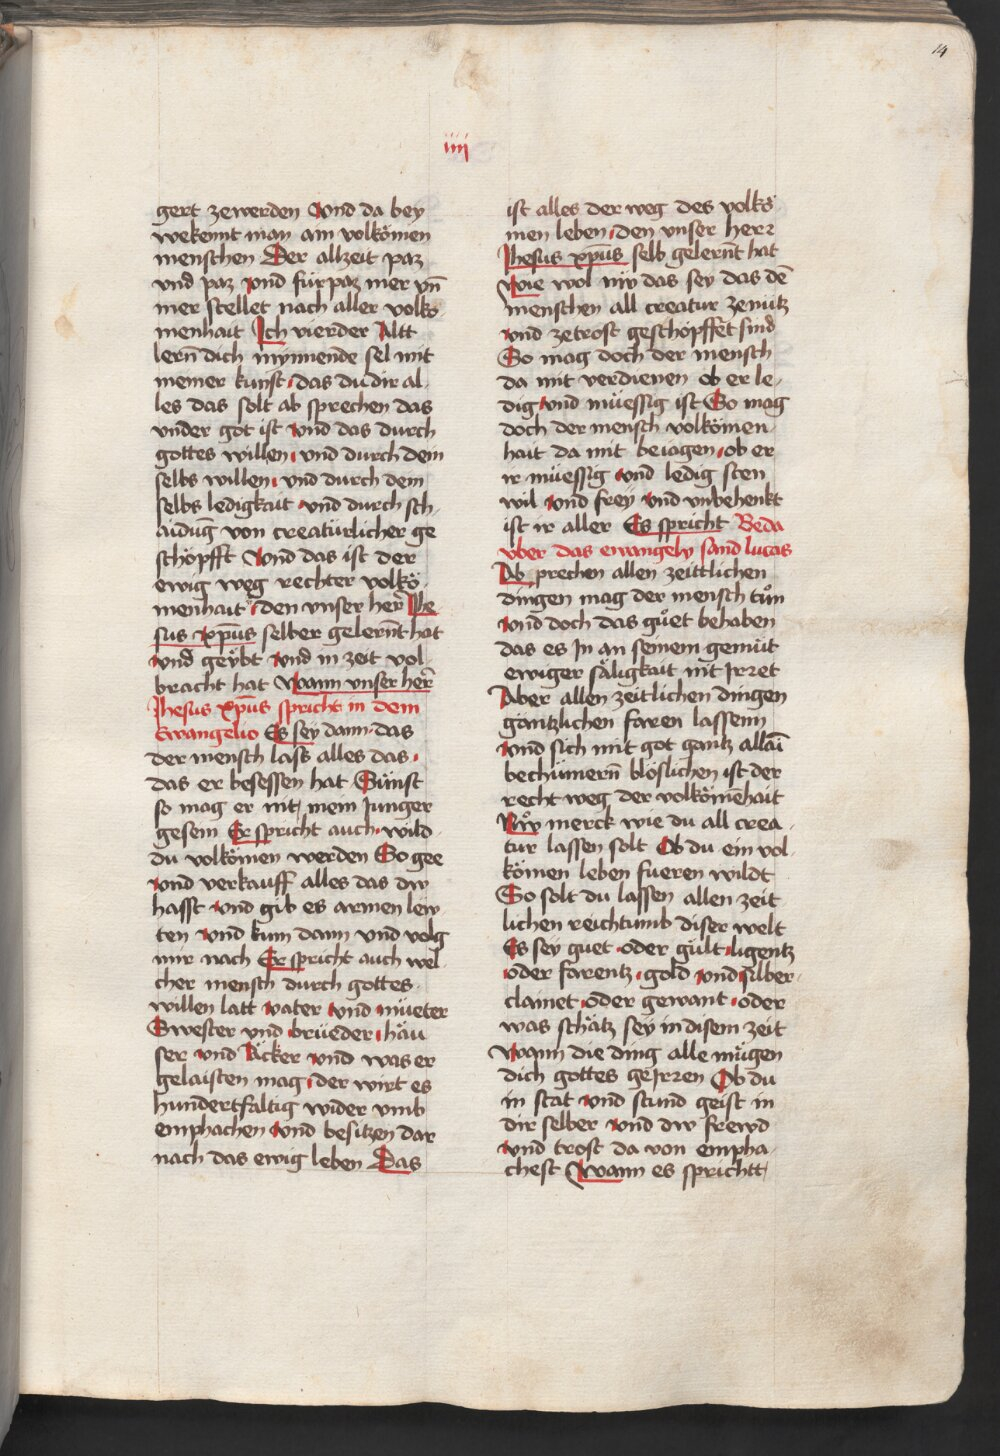 14
iiij
gert zewerden Vnd da bey
wekennt man am volkömen
menschen Der allzeit paz
vnd paz vnd fürpaz mer vn̄
mer stellet nach aller volkö
menhait Ich vierder Altt
lern dich mynnende sel mit
meiner kunst das du dir al
les das solt ab sprechen das
vnder got ist vnd das durch
gottes willen vnd durch dein
selbs willen vnd durch dein
selbs ledigkait vnd durch sch
aidūg von creatürlicher ge
schöpfft Vnd das ist der
ewig weg rechter volkö
menhait den vnser her̄ Jhe
sus xp̄us selber gelern̄t hat
vnd geÿbt vnd in zeit vol
bracht hat Wann vnser her̄
Jhesus xp̄us spricht in dem
Ewangelio Es sey dann das
der mensch lass alles das
das er besessen hat Sünst
so mag er nit mein Junger
gesein Er spricht auch wild
du volkömen werden So gee
vnd verkauff alles das dw
hasst vnd gib es armen lew
ten vnd kum dann vnd volg
mir nach Er spricht auch wel
cher mensch durch gottes
willen latt vater vnd müeter
Swester vnd brüeder häu
ser vnd Äcker vnd was er
gelaisten mag der wirt es
hundertfältig wider vmb
emphachen vnd besitzen dar
nach das ewig leben Das
ist alles der weg des volkö
men leben den vnser herr
Jhesus xp̄us selb gelern̄t hat
Wie wol nw das sey das dē
menschen all creatur zenütz
vnd zetrost geschöpffet sind
So mag doch der mensch
da mit verdienen ob er le
dig vnd müessig ist So mag
doch der mensch volkömen
hait da mit beiagen ob er
ir müessig vnd ledig sten
wil vnd freÿ vnd vnbehenkt
ist ir aller Es spricht Beda
vber das ewangely sand lucas
Ab prechen allen zeittlichen
dingen mag der mensch tůn
vnd doch das gůet behaben
das es In an seinem gemüt
ewiger säligkait nit Jrret
Aber allen zeitlichen dingen
gäntzlichen faren lassenn
vnd sich mit got gantz allaī
bechümern̄ blöslichen ist der
recht weg der volkömēhait
Nw merck wie du all crea
tur lassen solt Ob du ein vol
kömen leben füeren wildt
So solt du lassen allen zeit
lichen reichtumb diser welt
Es sey guet oder gült ligentz
oder farentz gold vnd silber
clainet oder gewant oder
was schätz sey in disem zeit
Wann die ding alle mügen
dich gottes geJrren Ob du
in stat vnd stund geist in
dir selber vnd dw frewd
vnd trost da von empha
chest Wann es sprichtt